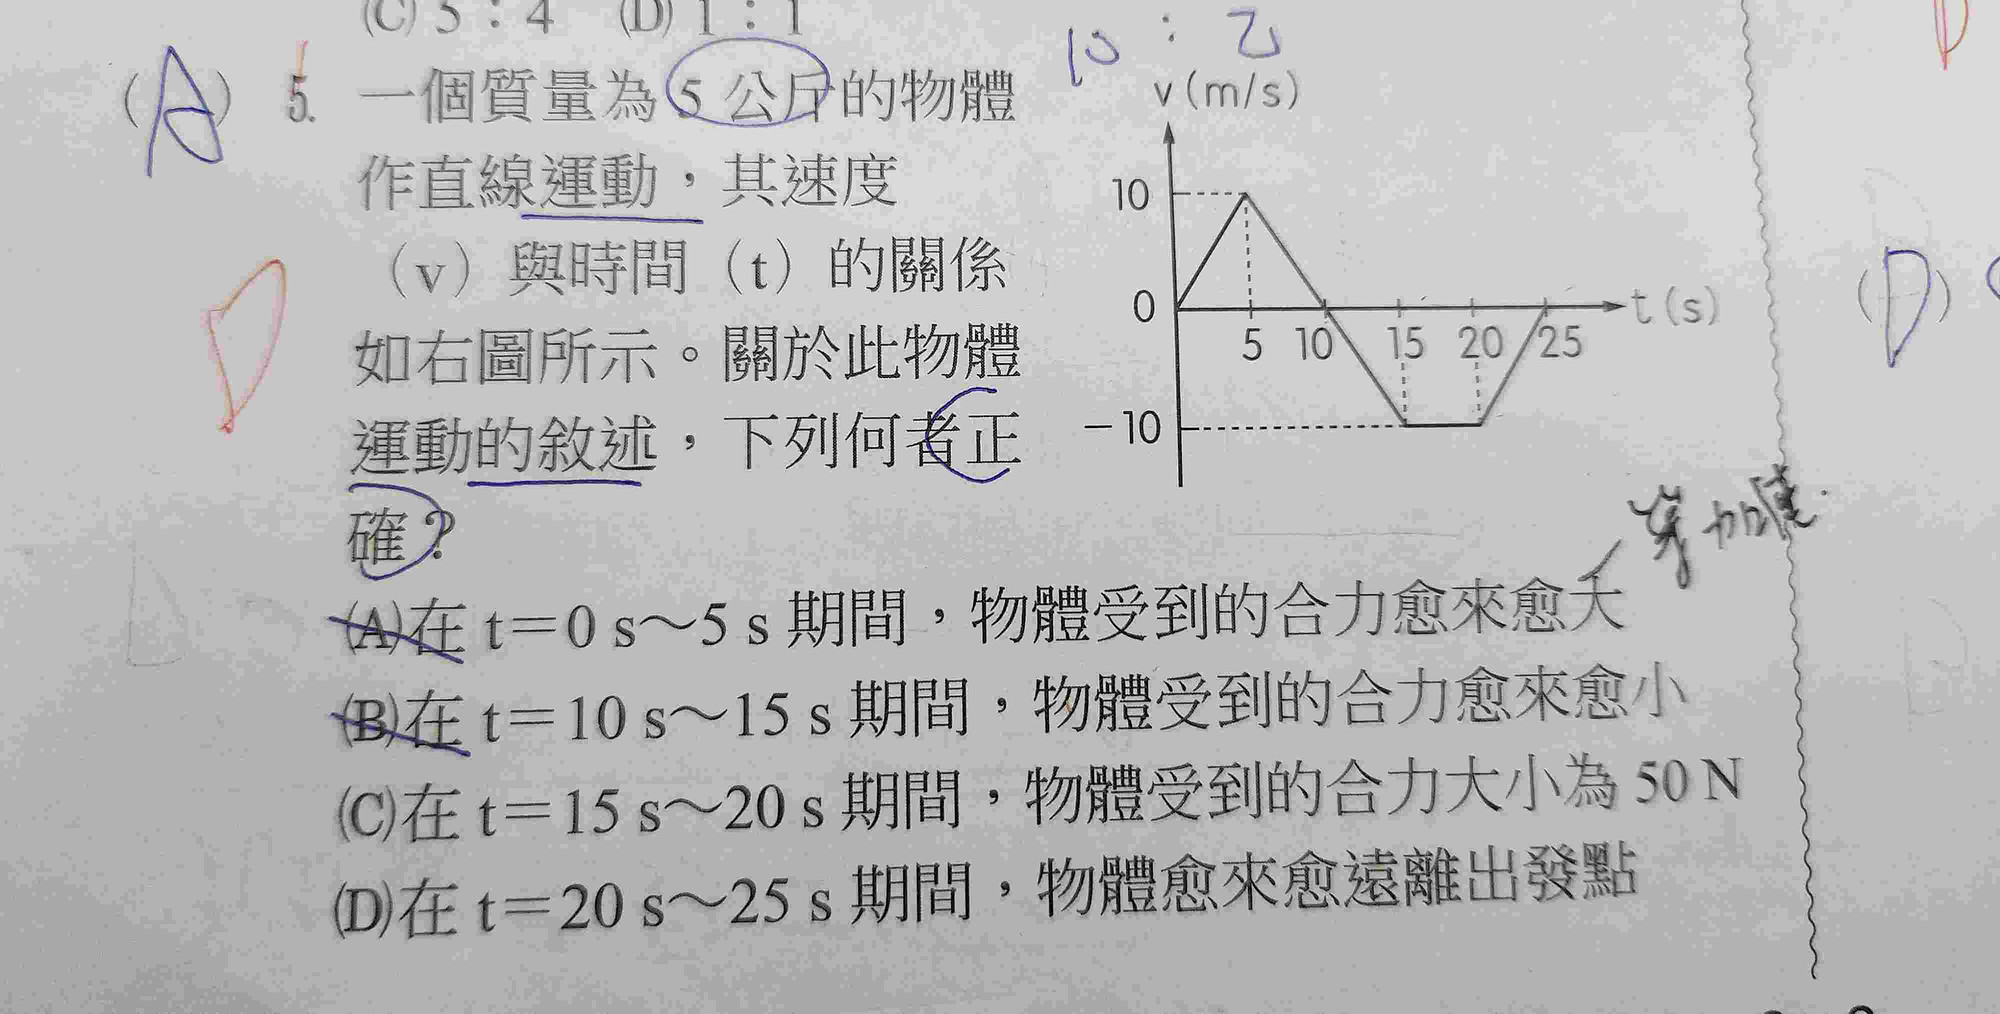 (C) 5：4　(D) 1：1
10：2
(A) 5. 一個質量為 5 公斤的物體
作直線運動，其速度
（v）與時間（t）的關係
如右圖所示。關於此物體
運動的敘述，下列何者正
確？
v(m/s)
10
0
5 10 15 20 25
t(s)
－10
D
等加速
(A)在 t＝0 s～5 s 期間，物體受到的合力愈來愈大
(B)在 t＝10 s～15 s 期間，物體受到的合力愈來愈小
(C)在 t＝15 s～20 s 期間，物體受到的合力大小為 50 N
(D)在 t＝20 s～25 s 期間，物體愈來愈遠離出發點
(D)